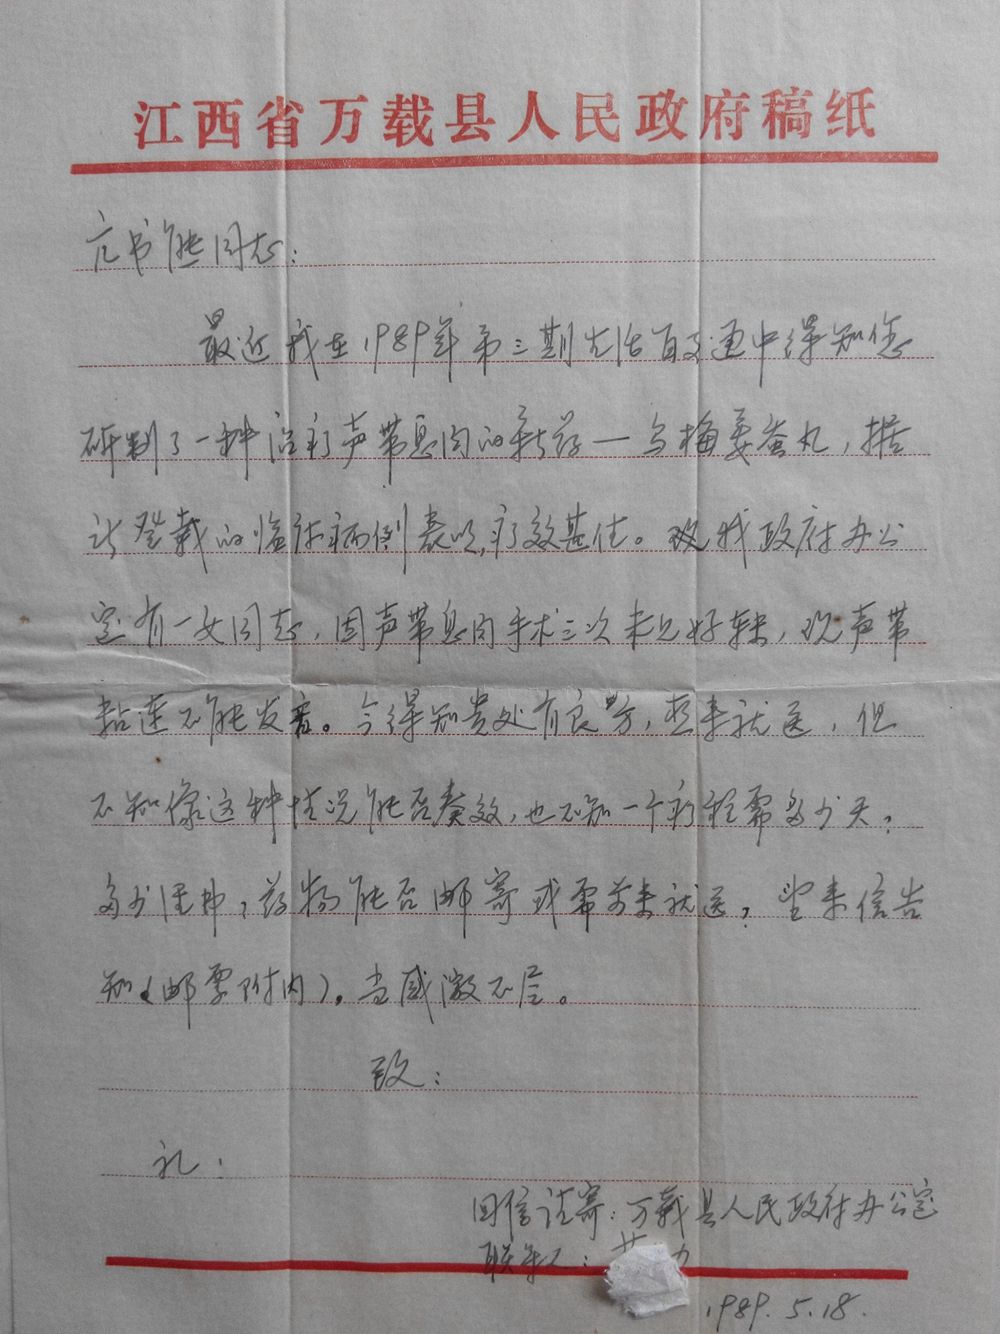 江西省万载县人民政府稿纸
亢书能同志：
最近我在1989年第三期生活百事通中得知您
研制了一种治疗声带息肉的新药—乌梅姜蚕丸，据
许登载的临床病例表明，疗效甚佳。现我政府办公
室有一女同志，因声带息肉手术三次未见好转，现声带
粘连不能发音。今得知贵处有良方，想来就医，但
不知像这种情况能否奏效，也不知一个疗程需多少天，
多少经费，药物能否邮寄或需前来就医，望来信告
知（邮票附内）。当感激不尽。
致：
礼：
回信请寄：万载县人民政府办公室
联系人：
1989.5.18.